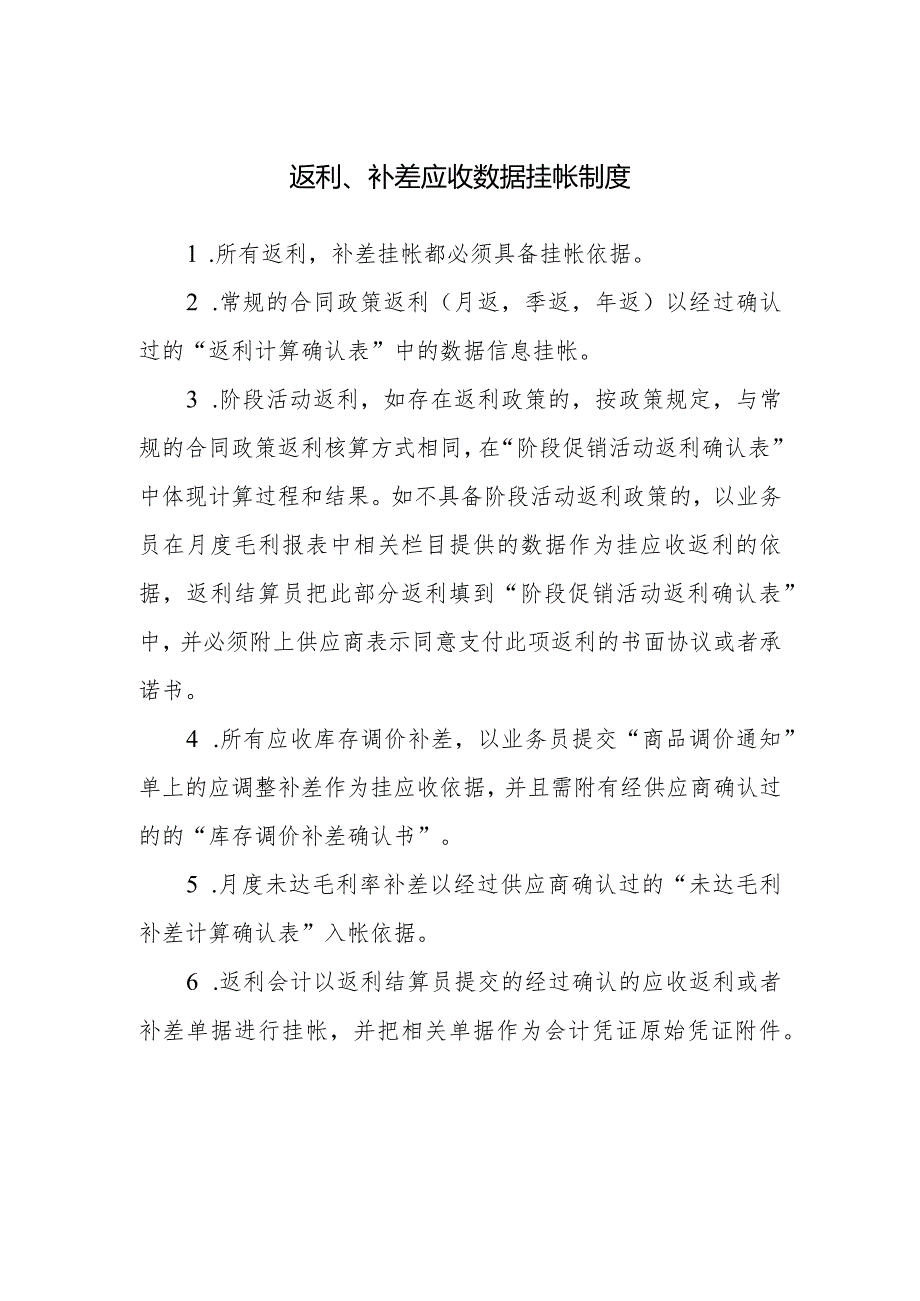 返利、补差应收数据挂帐制度
1 .所有返利，补差挂帐都必须具备挂帐依据。
2 .常规的合同政策返利（月返，季返，年返）以经过确认
过的“返利计算确认表”中的数据信息挂帐。
3 .阶段活动返利，如存在返利政策的，按政策规定，与常
规的合同政策返利核算方式相同，在“阶段促销活动返利确认表”
中体现计算过程和结果。如不具备阶段活动返利政策的，以业务
员在月度毛利报表中相关栏目提供的数据作为挂应收返利的依
据，返利结算员把此部分返利填到“阶段促销活动返利确认表”
中，并必须附上供应商表示同意支付此项返利的书面协议或者承
诺书。
4 .所有应收库存调价补差，以业务员提交“商品调价通知”
单上的应调整补差作为挂应收依据，并且需附有经供应商确认过
的的“库存调价补差确认书”。
5 .月度未达毛利率补差以经过供应商确认过的“未达毛利
补差计算确认表”入帐依据。
6 .返利会计以返利结算员提交的经过确认的应收返利或者
补差单据进行挂帐，并把相关单据作为会计凭证原始凭证附件。